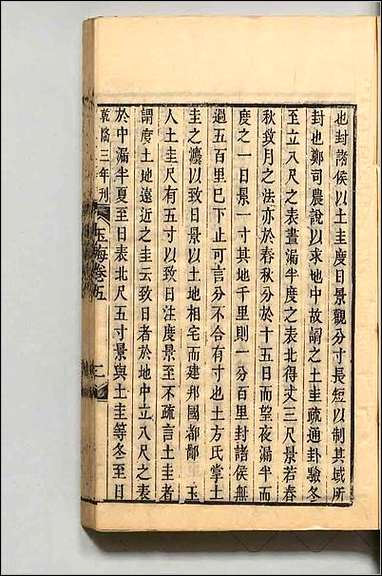 也封諸侯以土圭度日景觀分寸長短以制其域所
封也鄭司農說以求地中故謂之土圭疏通卦驗冬
至立八尺之表晝漏半度之表北得丈三尺景若春
秋致月之法亦於春秋分於十五日而望夜漏半而
度之一日景一寸其地千里則一分百里封諸侯無
過五百里已下止可言分不合有寸也土方氏掌土
圭之灋以致日景以土地相宅而建邦國都鄙 玉
人土圭尺有五寸以致日注度景至不疏言土圭者
謂度土地遠近之圭云致日者於地中立八尺之表
於中漏半夏至日表北尺五寸景與土圭等冬至日
乾隆三年刊 玉海卷五 二